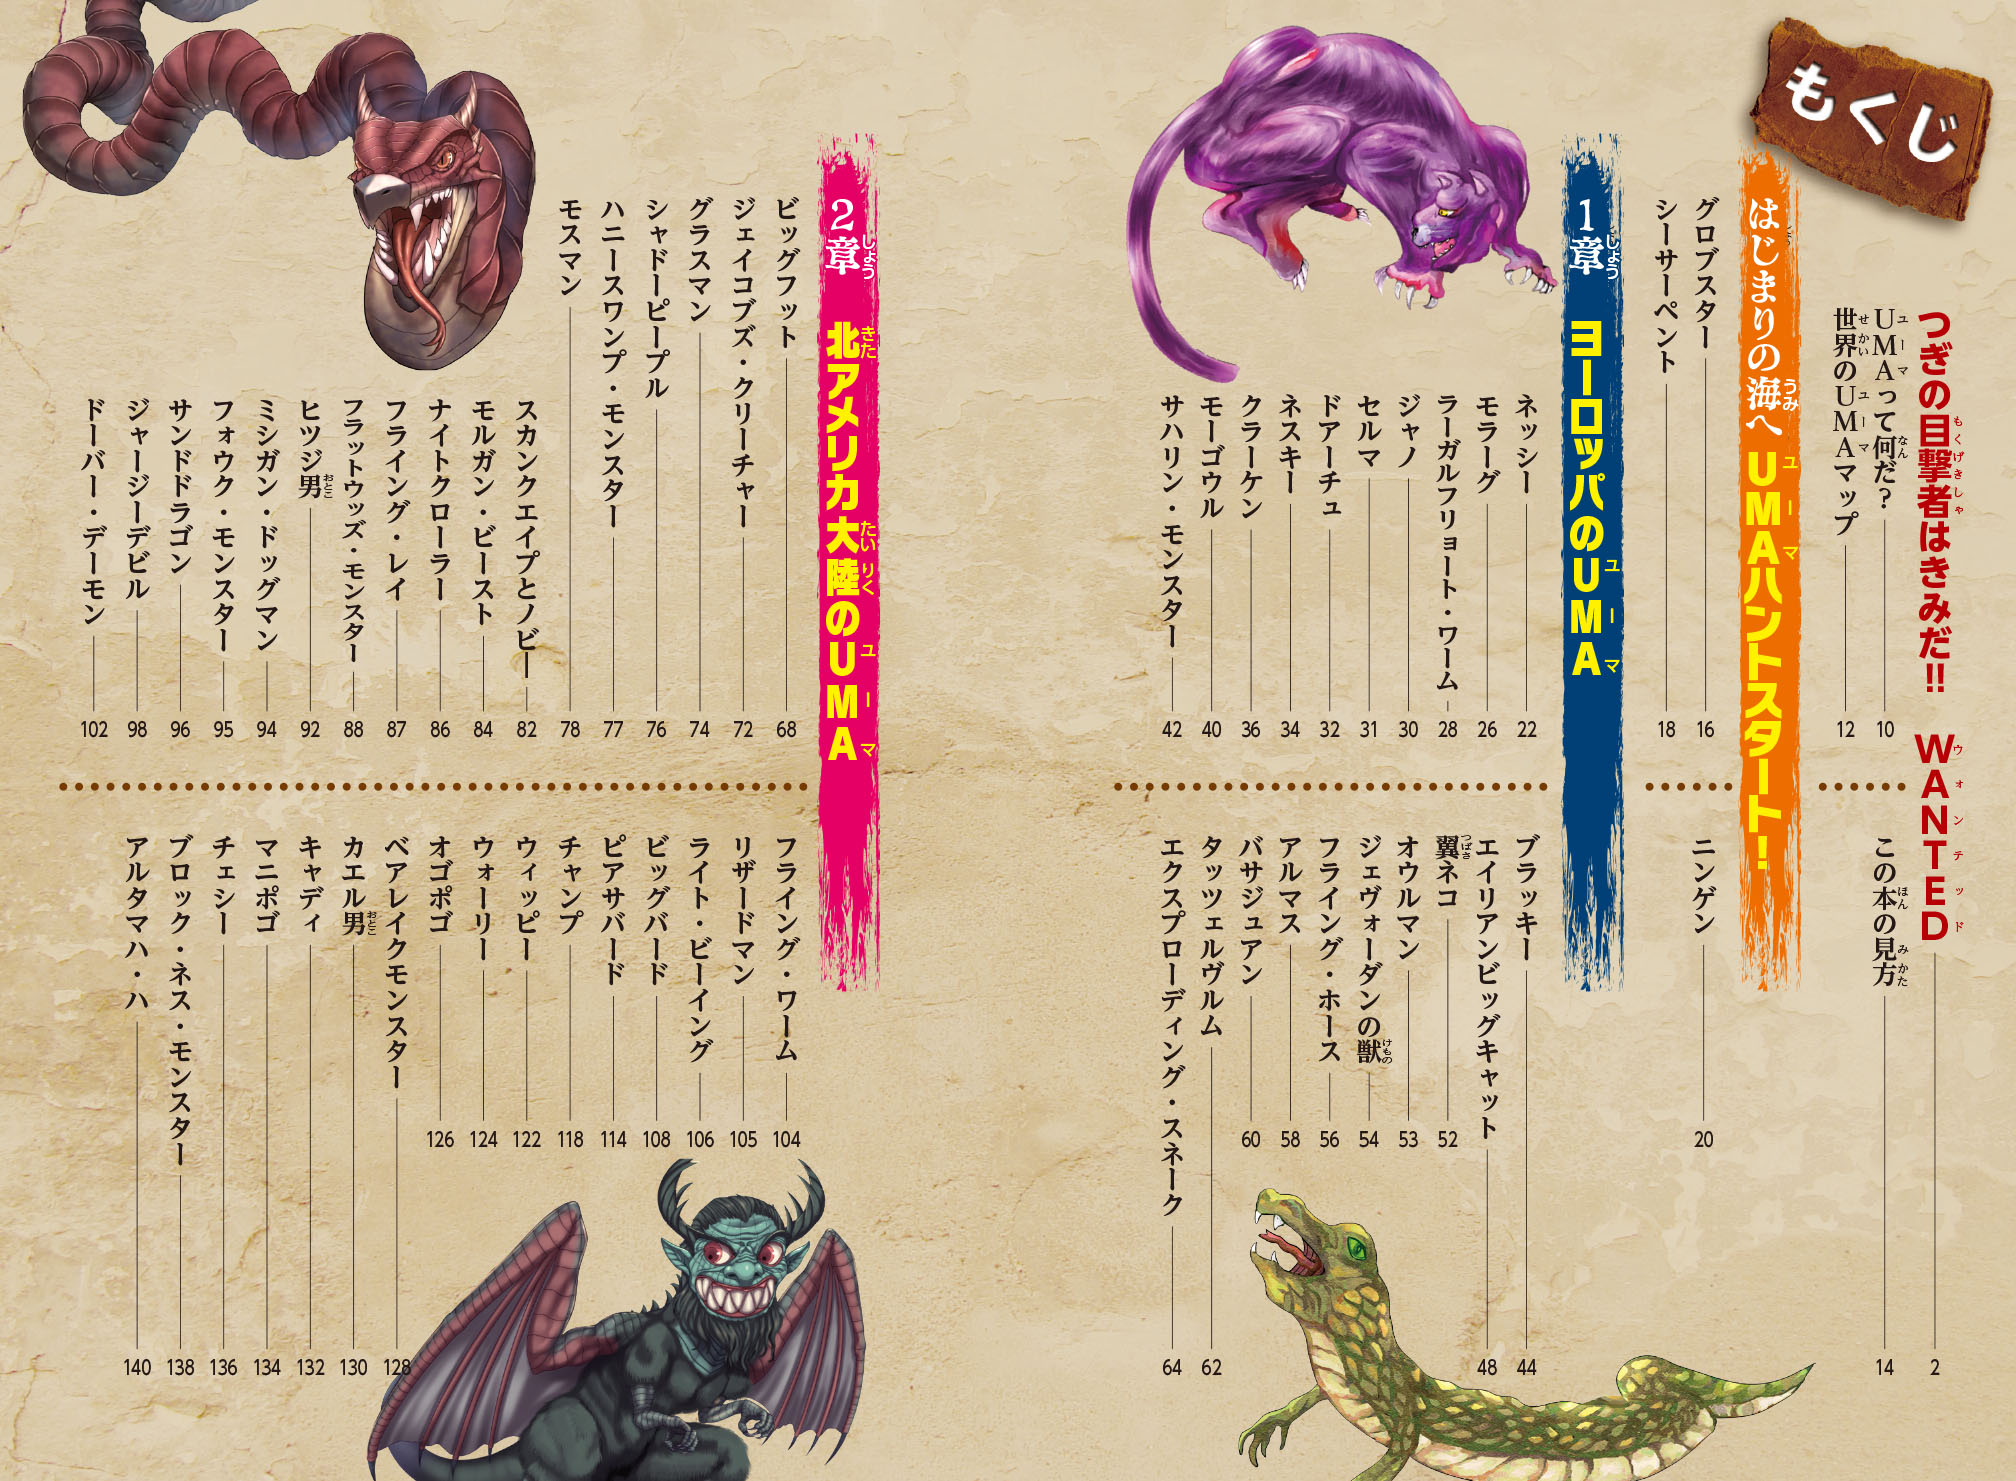 もくじ
つぎの目撃者はきみだ!! WANTED 2
UMAって何だ? 10
世界のUMAマップ 12
この本の見方 14
はじまりの海へ UMAハントスタート!
グロブスター 16
シーサーペント 18
ニンゲン 20
1章 ヨーロッパのUMA
ネッシー 22
モラーグ 26
ラーガルフリョート・ワーム 28
ジャノ 30
セルマ 31
ドアーチュ 32
ネスキー 34
クラーケン 36
モーゴウル 40
サハリン・モンスター 42
ブラッキー 44
エイリアンビッグキャット 48
翼ネコ 52
オウルマン 53
ジェヴォーダンの獣 54
フライング・ホース 56
アルマス 58
バサジュアン 60
タッツェルヴルム 62
エクスプローディング・スネーク 64
2章 北アメリカ大陸のUMA
ビッグフット 68
ジェイコブズ・クリーチャー 72
グラスマン 74
シャドーピープル 76
ハニースワンプ・モンスター 77
モスマン 78
スカンクエイプとノビー 82
モルガン・ビースト 84
ナイトクローラー 86
フライング・レイ 87
フラットウッズ・モンスター 88
ヒツジ男 92
ミシガン・ドッグマン 94
フォウク・モンスター 95
サンドドラゴン 96
ジャージーデビル 98
ドーバー・デーモン 102
フライング・ワーム 104
リザードマン 105
ライト・ビーイング 106
ビッグバード 108
ピアサバード 114
チャンプ 118
ウィッピー 122
ウォーリー 124
オゴポゴ 126
ベアレイクモンスター 128
カエル男 130
キャディ 132
マニポゴ 134
チェシー 136
ブロック・ネス・モンスター 138
アルタマハ・ハ 140